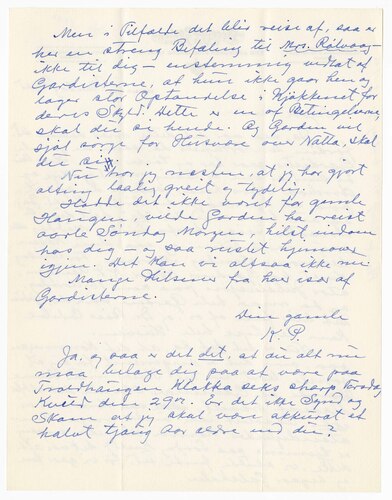 Men i Tilfælde det blir reise af, saa er
her en streng Befaling til Mrs. Rölvaag –
ikke til dig – enstemmig vedtat af
Gardisterne, at hun ikke gaar hen og
lager stor Opstandelse i Kjøkkenet for
deres Skyld. Dette er en af Betingelserne,
skal du se hende. Og Garden vil
sjøl sørge for Husvære over Natta, skal
du
Nu tror jeg næsten, at jeg har gjort
alting laglig greit og tydelig.
Hadde det ikke vært for gamle
Haugen, vilde Garden ha reist
aarle Søndag Morgen, hilst indom
hos dig – og saa reist hjemover
igjen. Det kan vi altsaa ikke nu.
Mange Hilsener fra hver især af
Gardisterne.
Din gamle
K. P.
Ja, og saa er det det, at du alt nu
maa belage dig paa at være paa
Troldhaugen Klokka seks sharp Torsdag
Kveld den 29de. Er det ikke Synd og
Skam, at jeg skal være akkurat et
halvt tjang aar ældre end du?